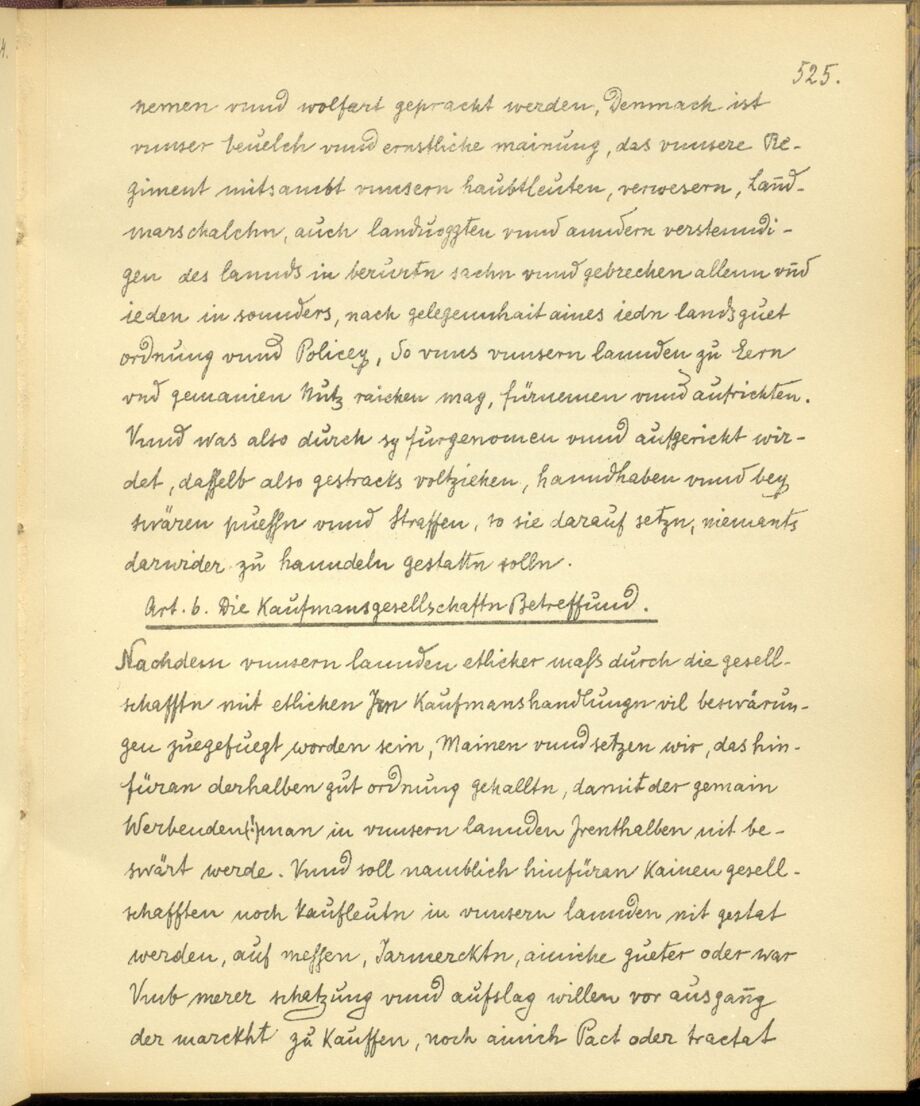 525.
nemen vnnd wolfart gepracht werden, Demnach ist
vnnser beuelch vnnd ernstliche mainung, das vnnsere Re-
giment mitsambt vnnsern haubtleuten, verwesern, Lannd-
marschalchn, auch landuogzten vnnd anndern verstenndi-
gen des lannds in berurtn sachn vnnd gebrechen allenn vnd
ieden in sounders, nach gelegennhait aines iedn lands guet
ordnung vnnd Policey, So vnns vnnsern lannden zu Eern
vnd gemanien Nutz raichen mag, fürnemen vnnd aufrichten.
Vnnd was also durch sy furgenomen vnnd aufgericht wir-
det, dasselb also gestracks voltziehen, hanndhaben vnnd bey
swären puessn vnnd Straffen, so sie darauf setzn, niemants
darwider zu hanndeln gestattn solln.
Art. 6. Die Kaufmansgesellschaftn Betreffund.
Nachdem vnnsern lannden etlicher mass durch die gesell-
schafftn mit etlichen Jrn Kaufmanshandlungn vil beswärun-
gen zuegefuegt worden sein, Mainen vnnd setzen wir, das hin-
füran derhalben gut ordnung gehalltn, damit der gemain
Werbenden(:)man in vnnsern lannden Jrenthalben nit be-
swärt werde. Vnnd soll namblich hinfüran Kainen gesell-
schafften noch Kaufleutn in vnnsern lannden nit gestat
werden, auf messen, Jarmercktn, ainiche gueter oder war
Vmb merer schatzung vnnd aufslag willen vor ausgang
der marckht zu Kauffen, noch ainich Pact oder tractat